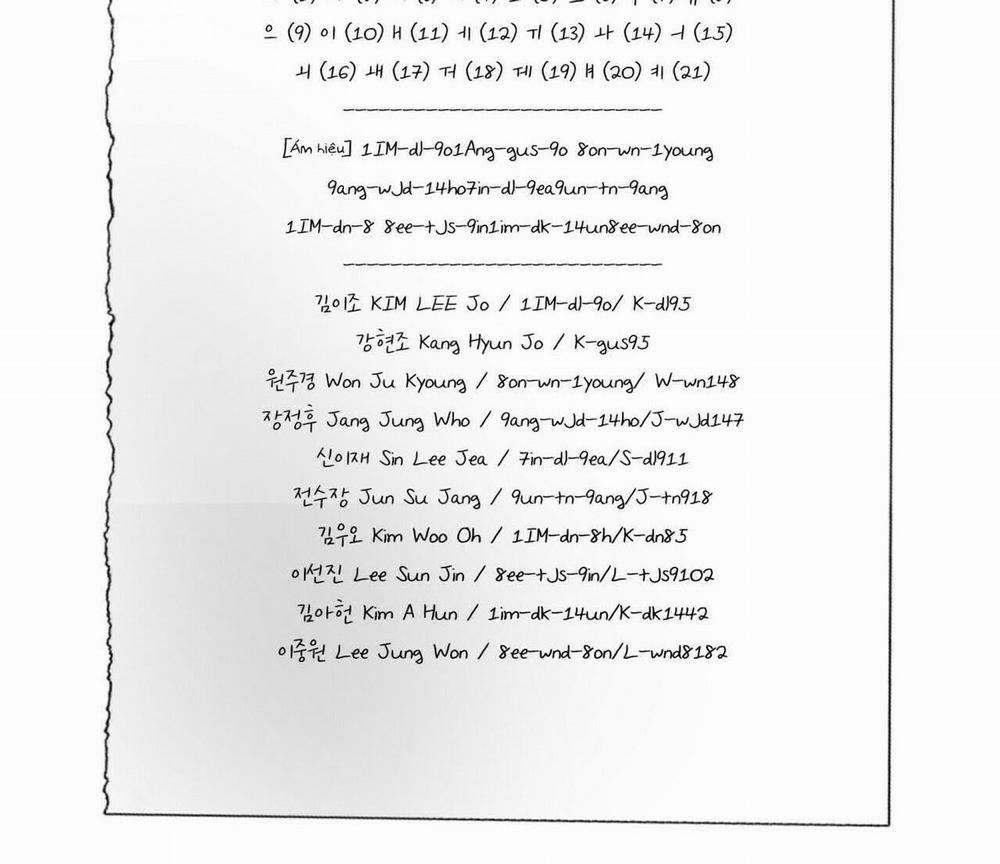 으 (9) 이 (10) ㅐ (11) ㅔ (12) ㅟ (13) ㅘ (14) ㅢ (15)
ㅚ (16) ㅙ (17) ㅝ (18) ㅞ (19) ㅒ (20) ㅖ (21)
[Ám hiệu] 1IM-dl-9o1Ang-gus-9o 8on-wn-1young
9ang-wJd-14ho7in-dl-9ea9un-tn-9ang
1IM-dn-8 8ee-tJs-9in1im-dk-14un8ee-wnd-8on
김이조 KIM LEE Jo / 1IM-dl-9o/ K-dl95
강현조 Kang Hyun Jo / K-gus95
원주경 Won Ju Kyoung / 8on-wn-1young/ W-wn148
장정후 Jang Jung Who / 9ang-wJd-14ho/J-wJd147
신이재 Sin Lee Jea / 7in-dl-9ea/S-dl911
전수장 Jun Su Jang / 9un-tn-9ang/J-tn918
김우오 Kim Woo Oh / 1IM-dn-8h/K-dn85
이선진 Lee Sun Jin / 8ee-tJs-9in/L-tJs9102
김아헌 Kim A Hun / 1im-dk-14un/K-dk1442
이중원 Lee Jung Won / 8ee-wnd-8on/L-wnd8182